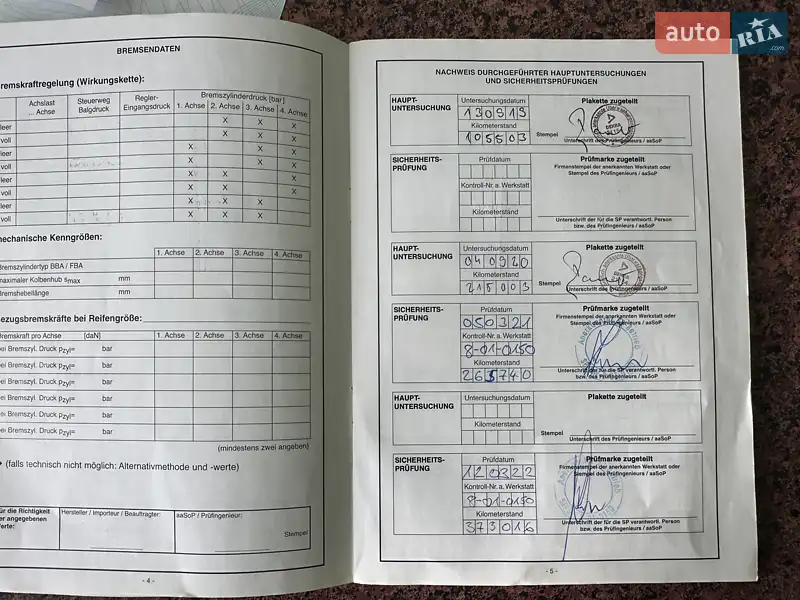 auto RIA .com
BREMSENDATEN
remskraftregelung (Wirkungskette):
Achslast ... Achse
Steuerweg Balgdruck
Regler- Eingangsdruck
Bremszylinderdruck [bar]
1. Achse 2. Achse 3. Achse 4. Achse
leer X X X
voll X X X
leer X X X
voll X X X
leer X X X
voll X X X
leer X X X
voll X X X
mechanische Kenngrößen:
1. Achse 2. Achse 3. Achse 4. Achse
Bremszylindertyp BBA / FBA
maximaler Kolbenhub smax mm
Bremshebellänge mm
Bezugsbremskräfte bei Reifengröße:
Bremskraft pro Achse [daN] 1. Achse 2. Achse 3. Achse 4. Achse
bei Bremszyl. Druck pZyl= bar
bei Bremszyl. Druck pZyl= bar
bei Bremszyl. Druck pZyl= bar
bei Bremszyl. Druck pZyl= bar
bei Bremszyl. Druck pZyl= bar
bei Bremszyl. Druck pZyl= bar
(mindestens zwei angeben)
(falls technisch nicht möglich: Alternativmethode und -werte)
für die Richtigkeit
der angegebenen
Werte:
Hersteller / Importeur / Beauftragter:
aaSoP / Prüfingenieur:
Stempel
- 4 -
NACHWEIS DURCHGEFÜHRTER HAUPTUNTERSUCHUNGEN
UND SICHERHEITSPRÜFUNGEN
HAUPT-
UNTERSUCHUNG
Untersuchungsdatum
130919
Kilometerstand
105503
Plakette zugeteilt
Stempel
DEKRA
Unterschrift des Prüfingenieurs / aaSoP
SICHERHEITS-
PRÜFUNG
Prüfdatum
Kontroll-Nr. a. Werkstatt
Kilometerstand
Prüfmarke zugeteilt
Firmenstempel der anerkannten Werkstatt oder
Stempel des Prüfingenieurs / aaSoP
Unterschrift der für die SP verantwortl. Person
bzw. des Prüfingenieurs / aaSoP
HAUPT-
UNTERSUCHUNG
Untersuchungsdatum
040920
Kilometerstand
215003
Plakette zugeteilt
Stempel
Unterschrift des Prüfingenieurs / aaSoP
SICHERHEITS-
PRÜFUNG
Prüfdatum
050321
Kontroll-Nr. a. Werkstatt
8-01-0150
Kilometerstand
265740
Prüfmarke zugeteilt
Firmenstempel der anerkannten Werkstatt oder
Stempel des Prüfingenieurs / aaSoP
Unterschrift der für die SP verantwortl. Person
bzw. des Prüfingenieurs / aaSoP
HAUPT-
UNTERSUCHUNG
Untersuchungsdatum
Kilometerstand
Plakette zugeteilt
Stempel
Unterschrift des Prüfingenieurs / aaSoP
SICHERHEITS-
PRÜFUNG
Prüfdatum
120322
Kontroll-Nr. a. Werkstatt
8-01-0150
Kilometerstand
373016
Prüfmarke zugeteilt
Firmenstempel der anerkannten Werkstatt oder
Stempel des Prüfingenieurs / aaSoP
Unterschrift der für die SP verantwortl. Person
bzw. des Prüfingenieurs / aaSoP
- 5 -